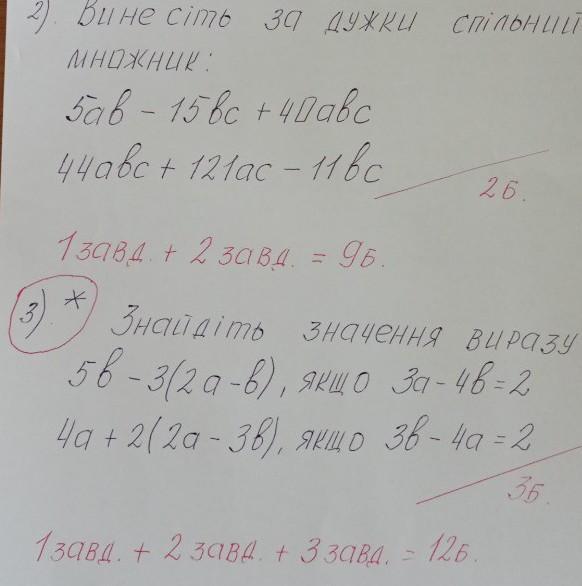 2). Винесіть за дужки спільний
множник:
5ав - 15вс + 40авс
44авс + 121ас - 11вс
2б.
1 завд. + 2 завд. = 9б.
3).* Знайдіть значення виразу
5в - 3(2а - в), якщо 3а - 4в = 2
4а + 2(2а - 3в), якщо 3в - 4а = 2
3б.
1 завд. + 2 завд. + 3 завд. = 12б.